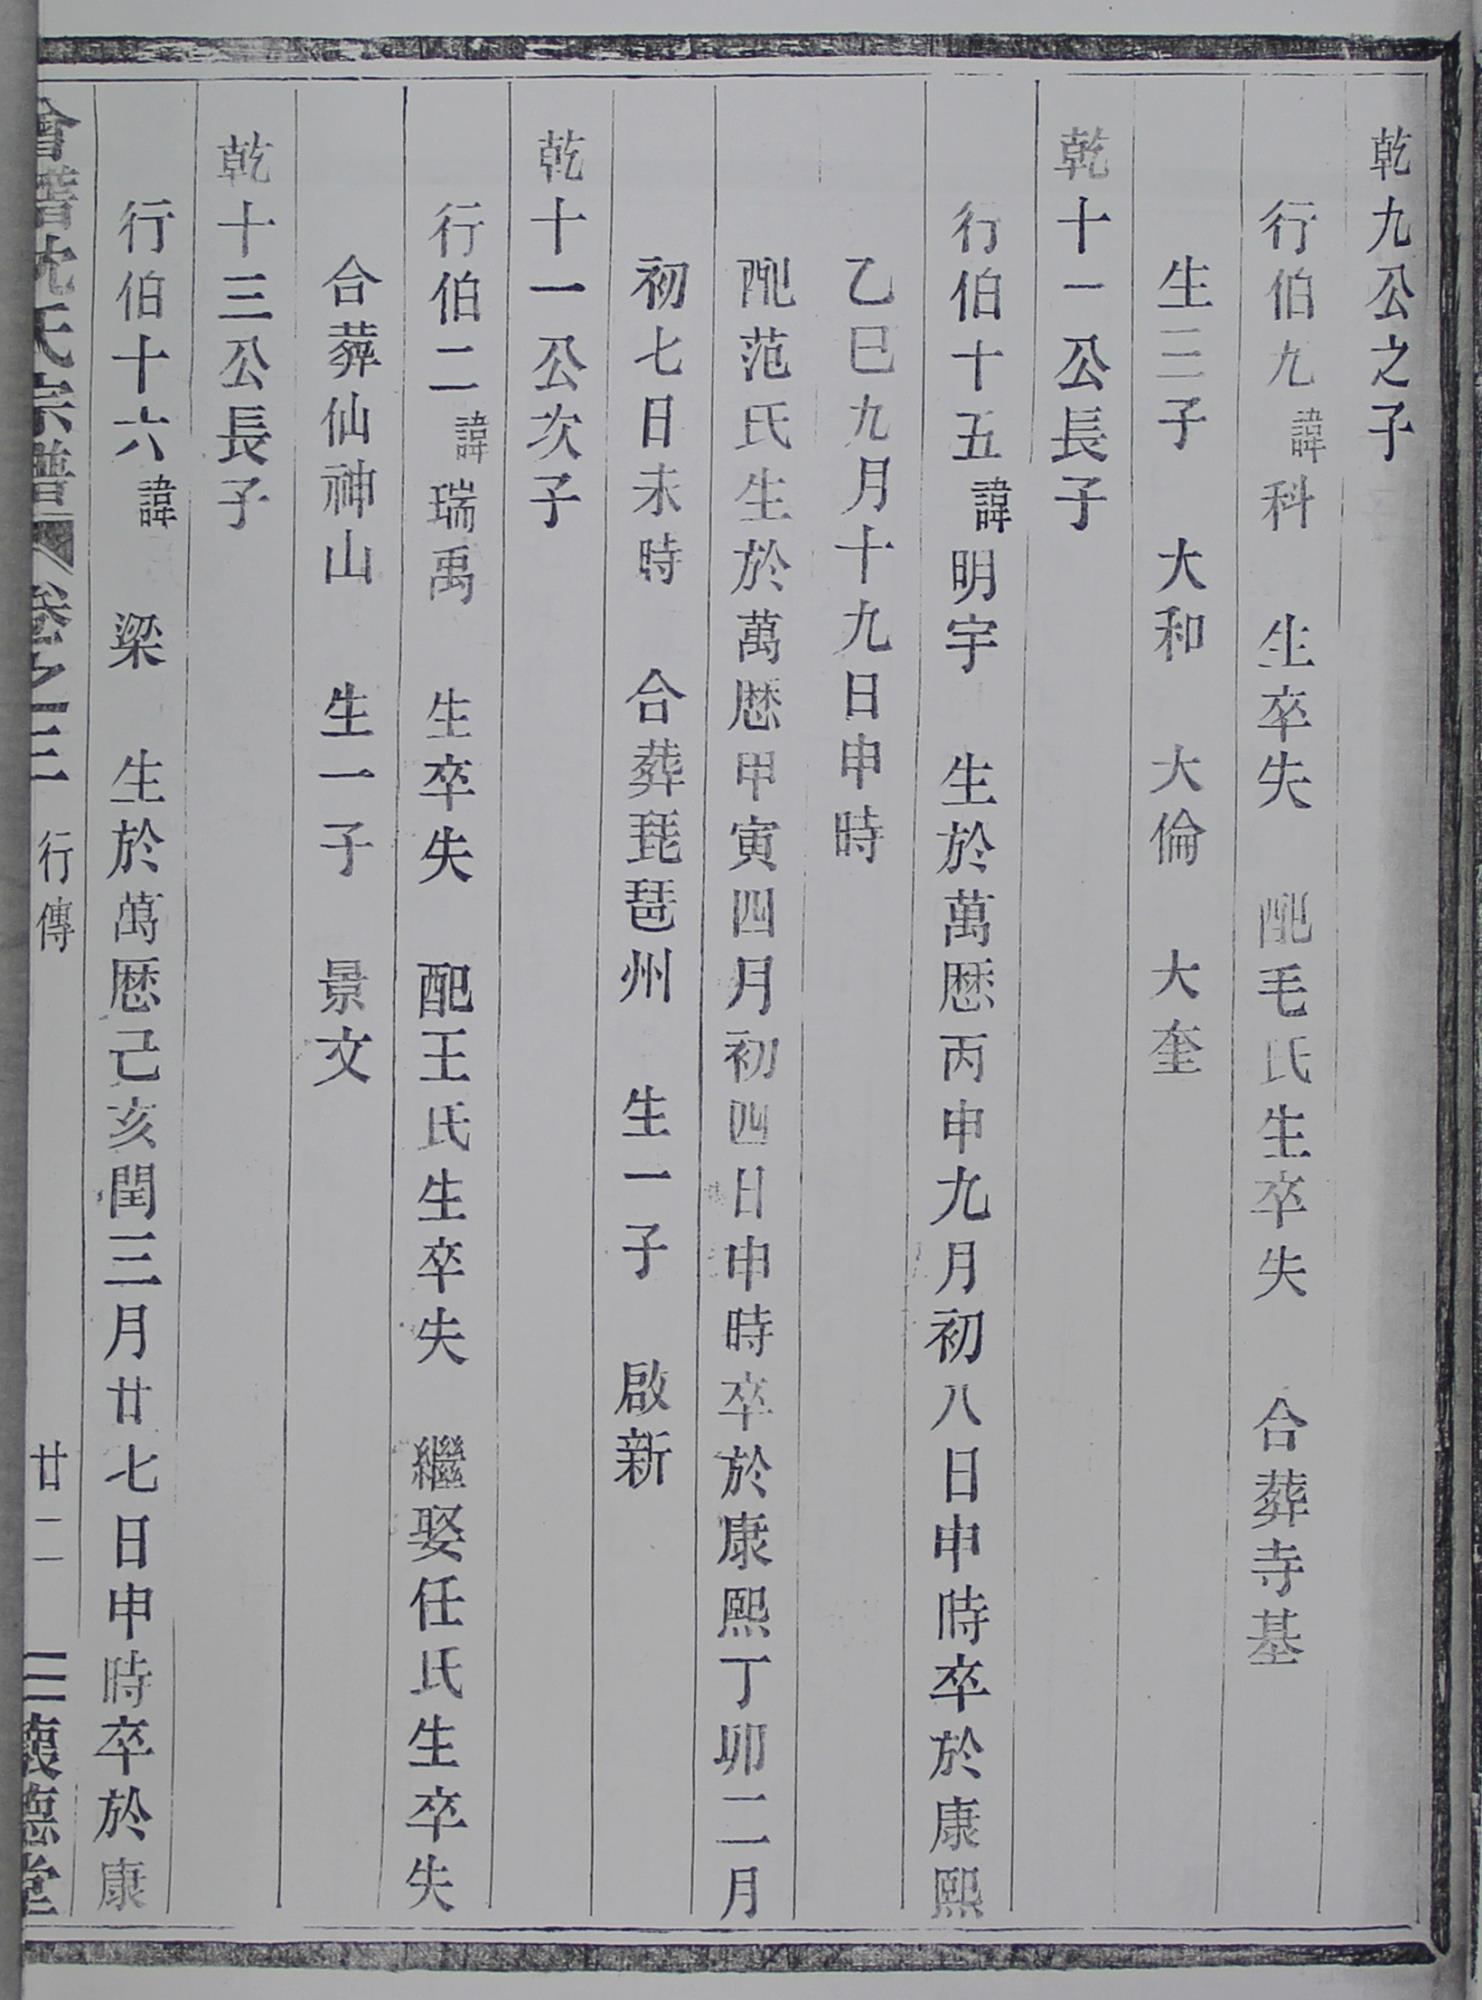 乾九公之子
行伯九諱科　生卒失　配毛氏生卒失　合葬寺基
生三子　大和　大倫　大奎
乾十一公長子
行伯十五諱明宇　生於萬厯丙申九月初八日申時卒於康熙
乙巳九月十九日申時
配范氏生於萬厯甲寅四月初四日申時卒於康熙丁卯二月
初七日未時　合葬琵琶州　生一子　啟新
乾十一公次子
行伯二諱瑞禹　生卒失　配王氏生卒失　繼娶任氏生卒失
合葬仙神山　生一子　景文
乾十三公長子
行伯十六諱　梁　生於萬厯己亥閏三月廿七日申時卒於康
會稽沈氏宗譜　卷之三　行傳　廿二　懷德堂